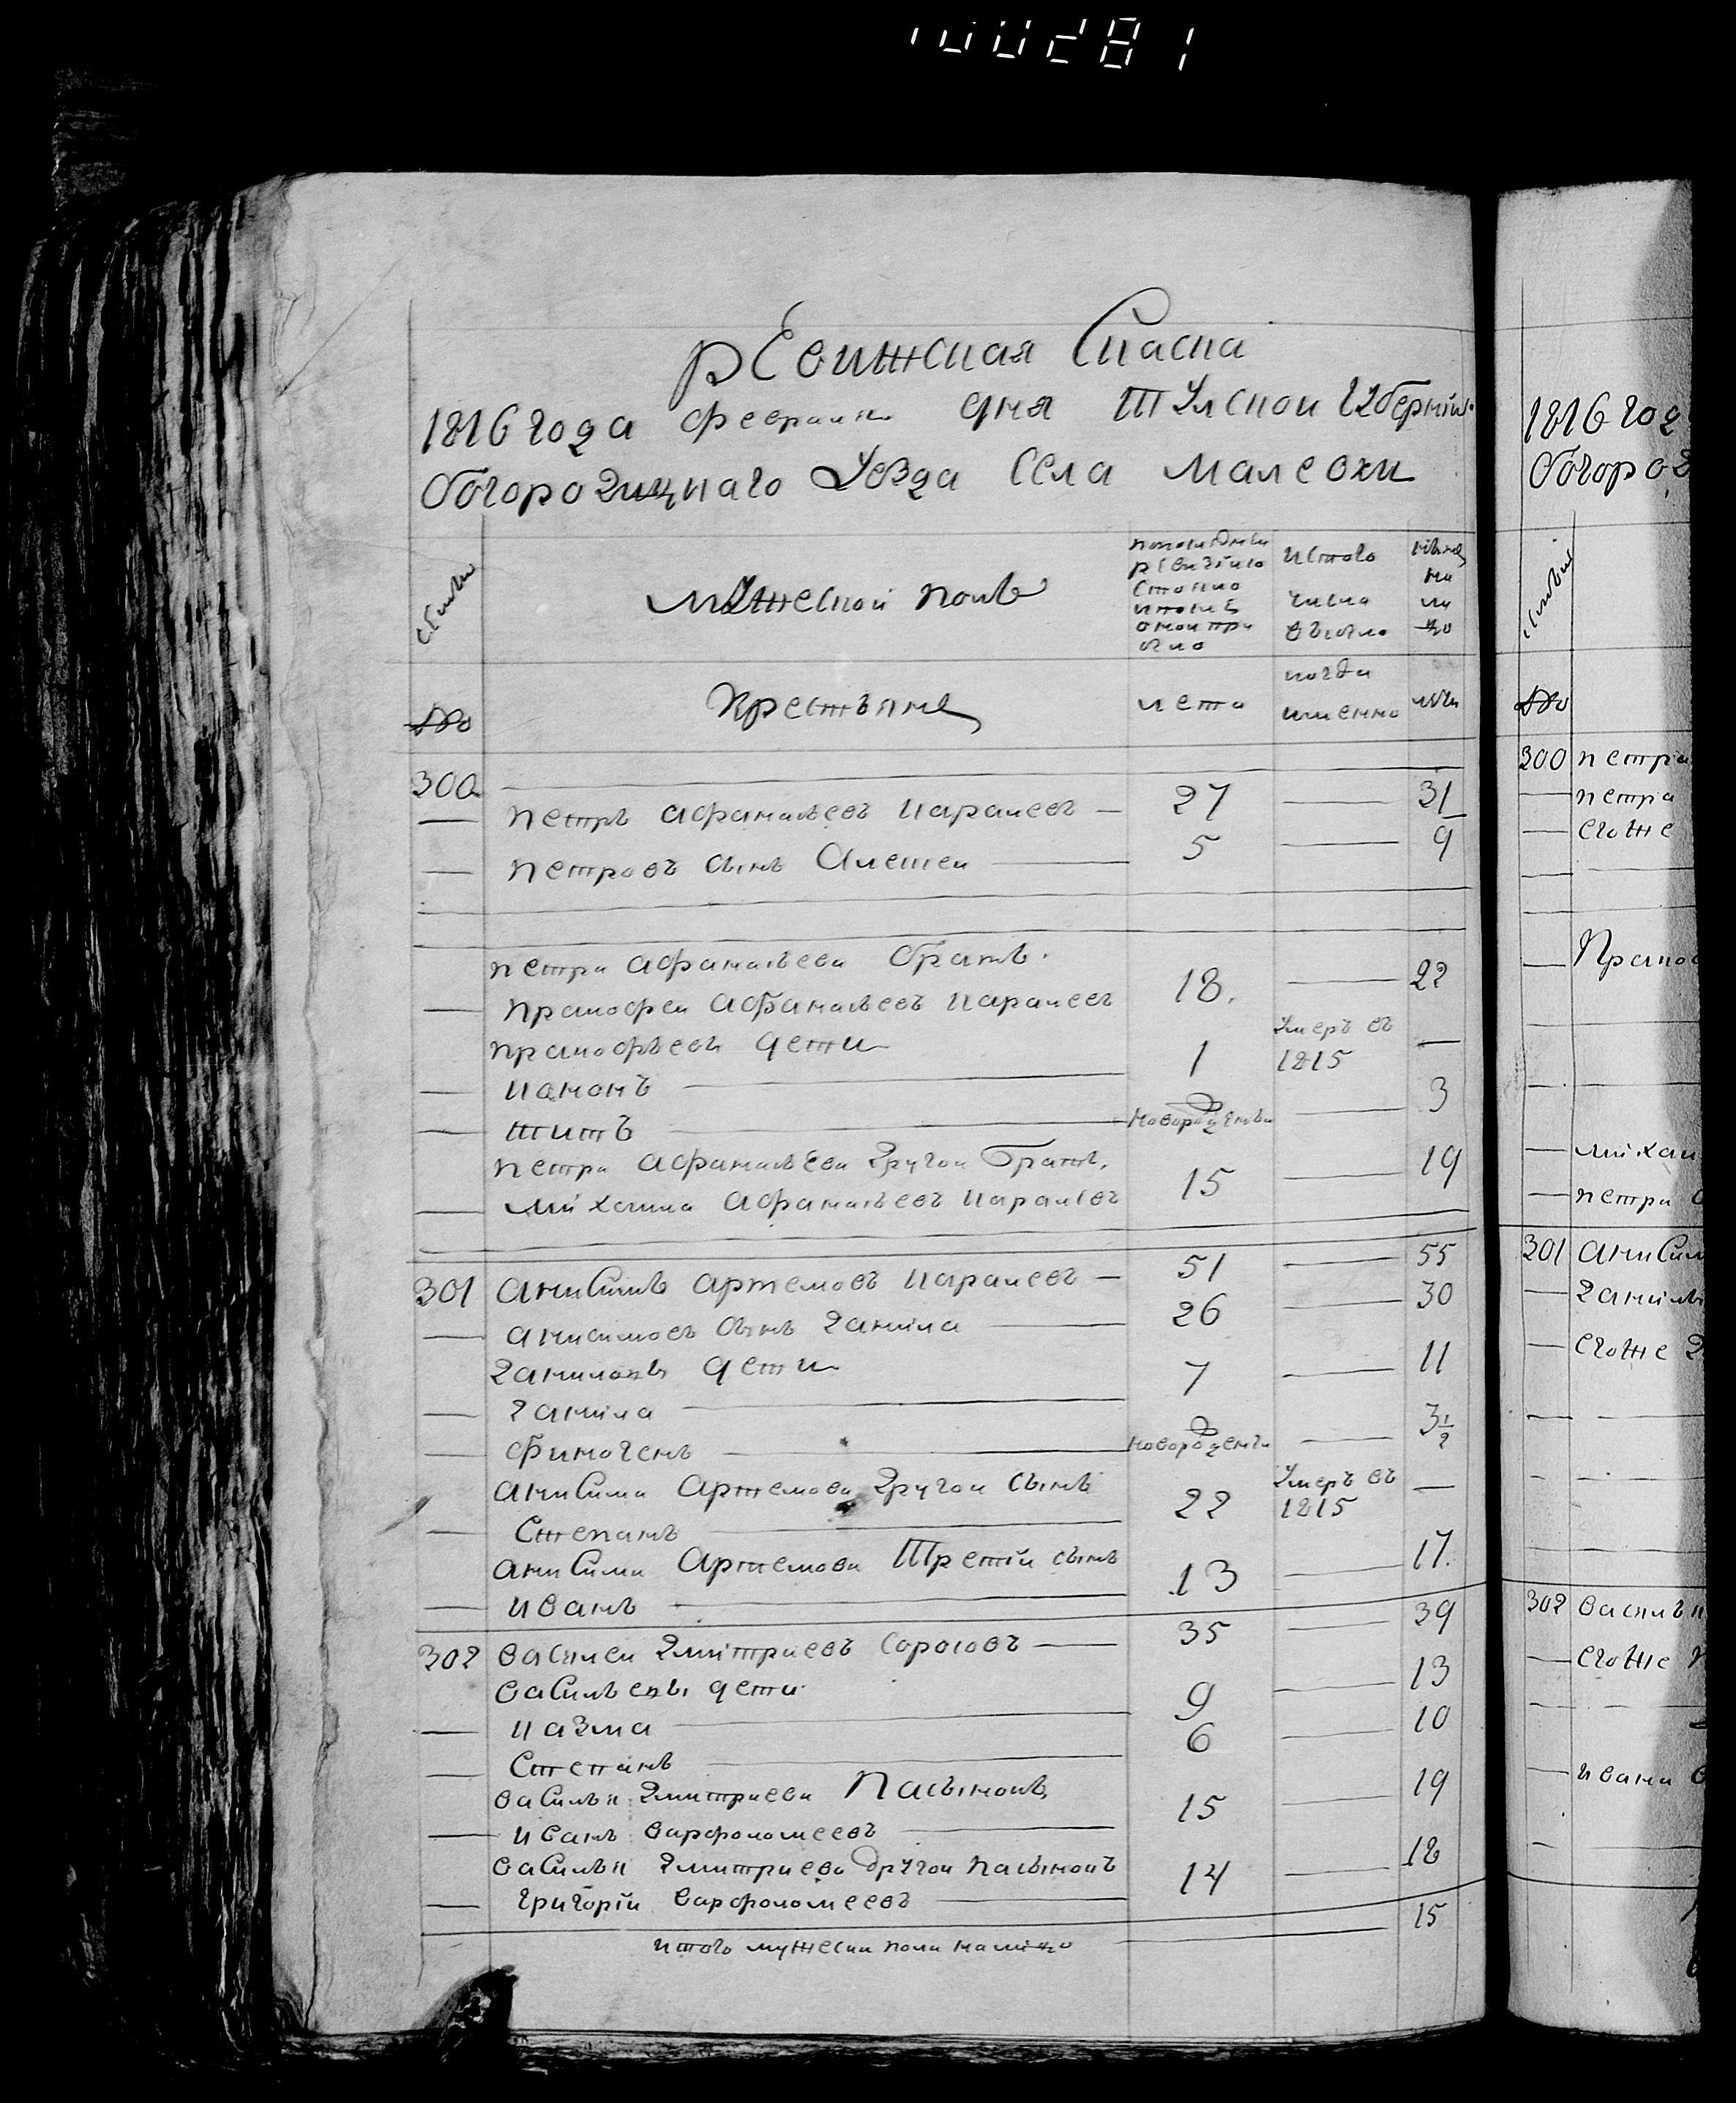 1000281
рЕвижская Скаска
1816 года февраля дня Тулской губернии
богородицкаго уезда села малеохи
семьи
мужеской полъ
последней ревизии состояло и после оной прибыло
Исъ того числа выбыло
ныне на лицо
№
крестьяне
лета
когда именно
лета
300
петръ афанасьевъ каралеевъ — 27 — 31
петровъ сынъ Алексей — 5 — 9
петра афанасьева братъ
пракофей афанасьевъ каралеевъ 18. — 22
пракофьевы дети
канонъ — 1 Умеръ въ 1815 —
титъ — новорожденъ — 3
петра афанасьева другой братъ
михаила афанасьевъ каралевъ 15 — 19
301 анисимъ артемовъ каралеевъ — 51 — 55
анисимовъ сынъ данила — 26 — 30
даниловы дети
данила — 7 — 11
финогенъ — новорожденъ — 3 1/2
анисима Артемова другой сынъ
Степанъ — 22 Умеръ въ 1815 —
анисима Артемова Третий сынъ
иванъ — 13 — 17.
302 василей дмитриевъ — 35 — 39
васильевы дети
казма — 9 — 13
Степанъ — 6 — 10
васильи дмитриева Пасынокъ
иванъ варфоломеевъ — 15 — 19
васильи дмитриева другой пасынокъ
григорий варфоломеевъ — 14 — 18
итого мужеска пола налицо — 15
1816 год
богород
№
300 петра
петра
егоже
Прако
михаи
петра
301 аниси
данилы
егоже
302 василья
егоже
ивана